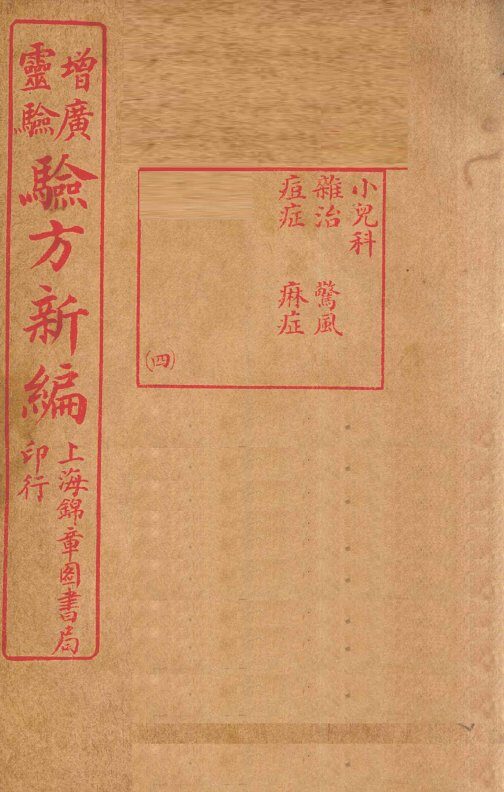 小兒科
雜治 驚風
痘症 痳症
(四)
增廣
靈驗
驗方新編
上海錦章圖書局
印行